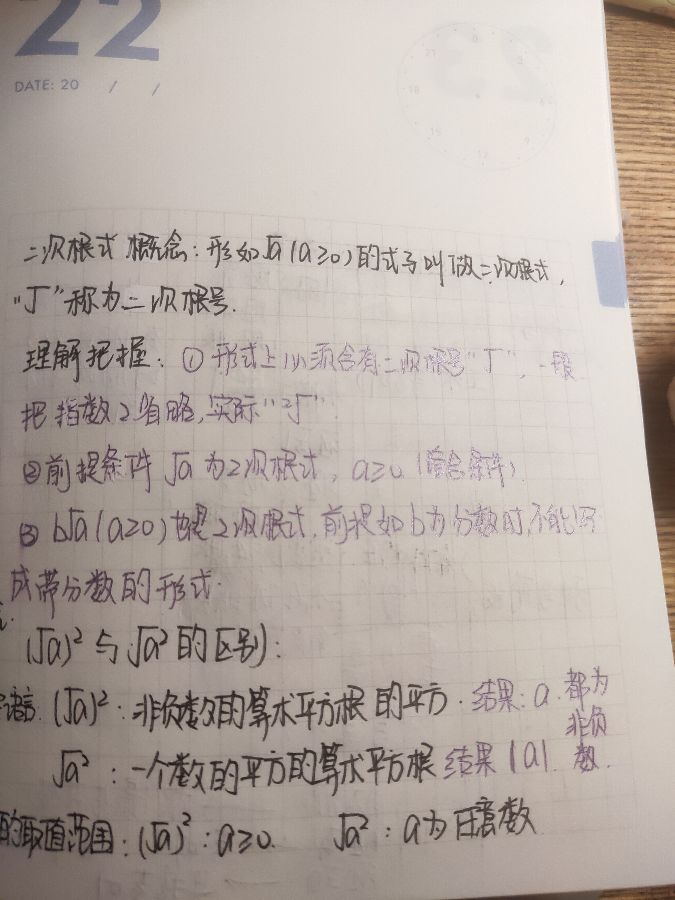 22
DATE: 20 / /
二次根式 概念：形如√a (a≥0) 的式子叫做二次根式，
“√”称为二次根号.
理解把握：① 形式上必须含有二次根号“√”，一般
把指数2省略，实际“²√”
②前提条件 √a 为2次根式，a≥0 (隐含条件).
③ b√a (a≥0) 也是2次根式，前提如b为分数时，不能写
成带分数的形式.
(√a)² 与 √a² 的区别：
语言. (√a)²：非负数的算术平方根的平方. 结果：a. 都为非负数.
√a²：一个数的平方的算术平方根 结果 |a|
的取值范围：(√a)²：a≥0. √a²：a为任意数